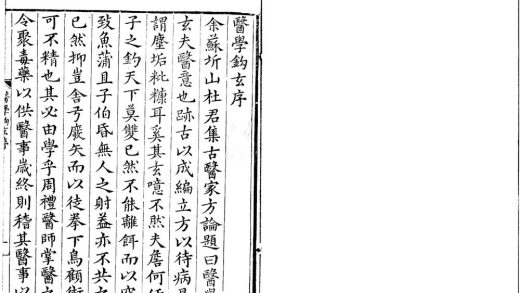 醫學鈎玄序
余蘇圻山杜君集古醫家方論題曰醫學
玄夫醫意也跡古以成編立方以待病是
謂塵垢粃糠耳奚其玄噫不然夫詹何任
子之鈎天下莫雙已然不能離餌而以空
致魚蒲且子伯昏無人之射益亦不共之
已然抑豈舍弓廢矢而以徒拳下鳥顧術
可不精也其必由學乎周禮醫師掌醫之
令聚毒藥以供醫事歲終則稽其醫事以